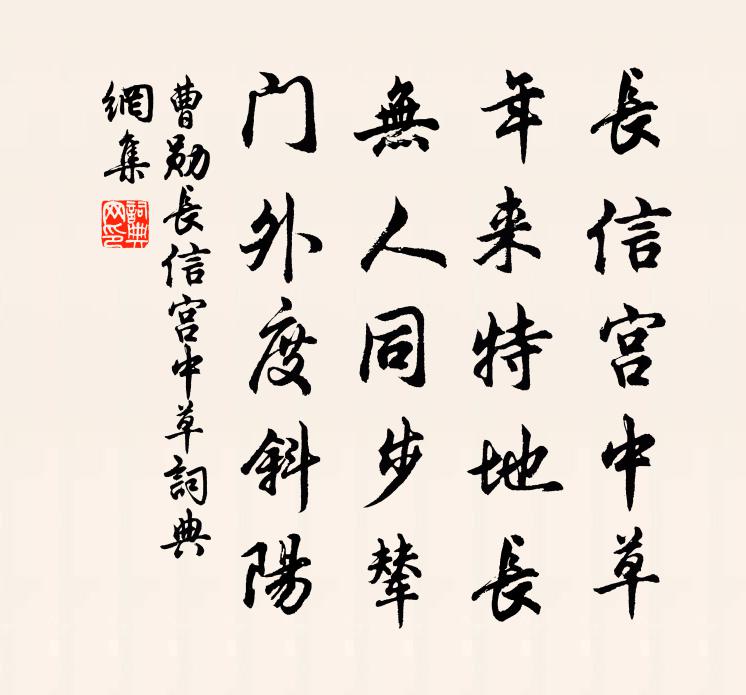 長信宫中草
年来特地長
無人同步輦
门外度斜陽
曹勛長信宫中草詞典
網集
詞典
网印